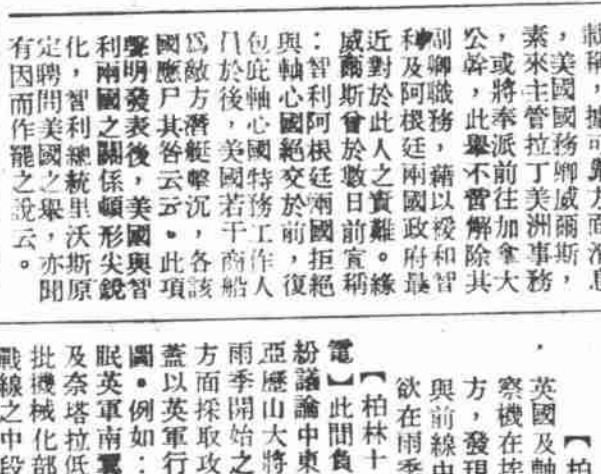 稱，據可靠方面消息
，美國國務卿威爾斯，
素來主管拉丁美洲事務
，或將奉派前往加拿大
公幹，此舉不啻解除其
副卿職務，藉以緩和智
利及阿根廷兩國政府最
近對於此人之責難。緣
威爾斯曾於數日前宣稱
：智利阿根廷兩國拒絕
與軸心國絕交於前，復
包庇軸心國特務工作人
於後，美國若干商船
爲敵方潛艇擊沉，各該
國應尸其咎云云。此項
聲明發表後，美國與智
利兩國之關係頓形尖銳
化，智利總統里沃斯原
定聘問美國之舉，亦聞
有因而作罷之說云。
【柏
英國及軸
，
察機在埃
方，發現
與前線中
欲在雨季
【柏林十
電】此間負
紛議論中東
亞歷山大將
雨季開始之
方面採取攻
蓋以英軍行
圖。例如：
眠英軍南翼
及奈塔拉低
批機械化部
戰線之中段